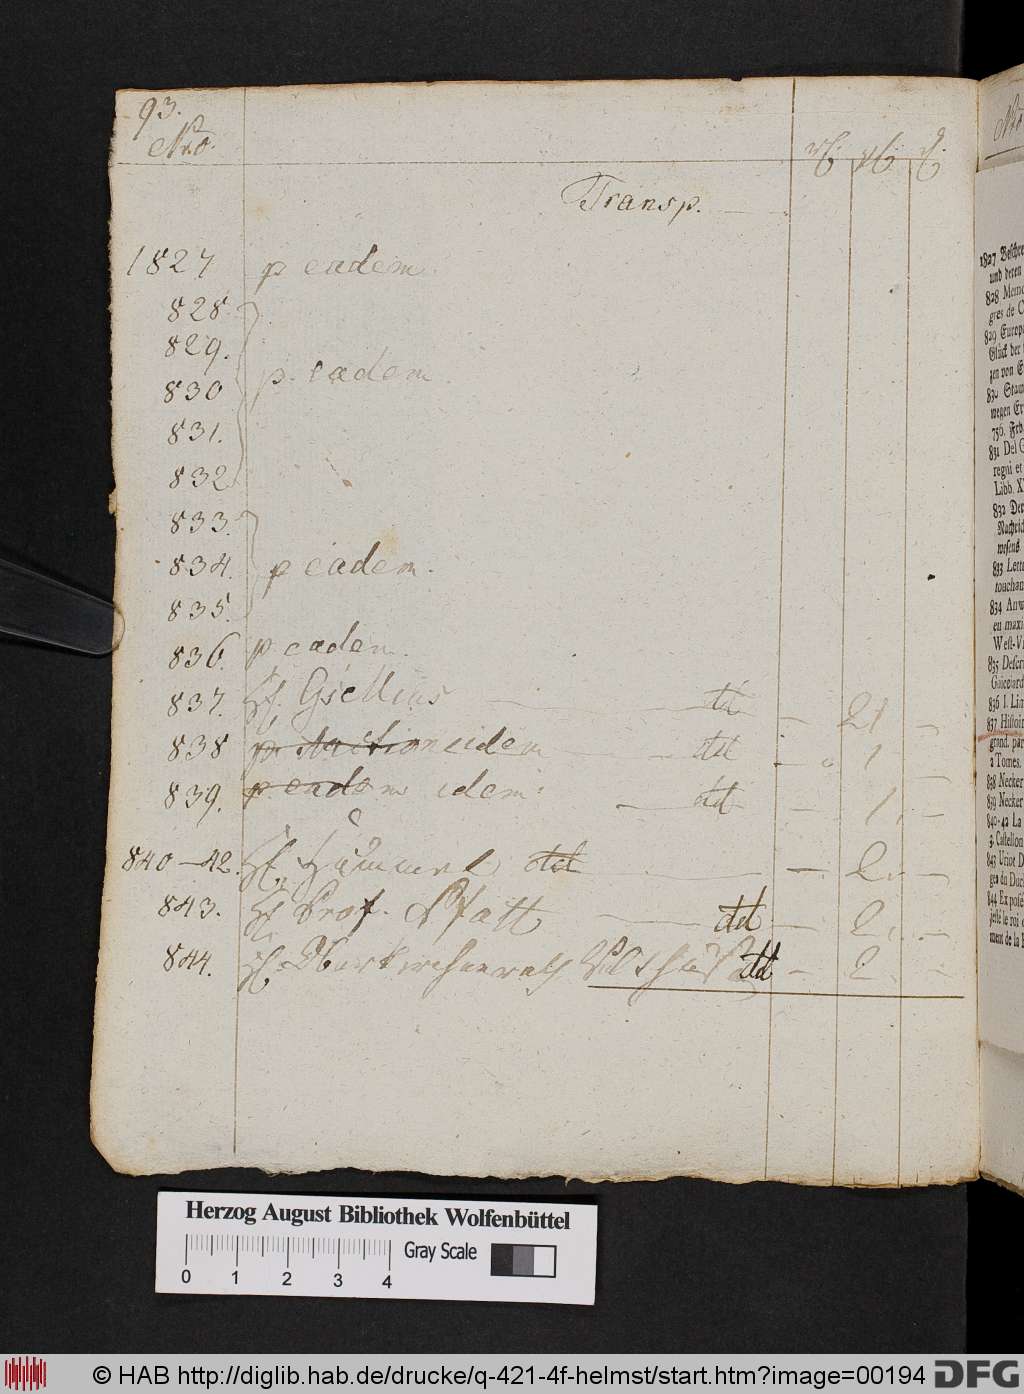 93.
Nro.
Transp.
1827 p eadem.
828.
829.
830 p. eadem.
831.
832
833.
834. p eadem.
835.
836. p eadem.
837. H. Gsellius dd — 21 —
838 idem dd — 1 —
839. idem dd — 1. —
840—42. H. Hummel dd — 2. —
843. H Prof. Pfaff dd — 2. —
844. H dd — 2. —
Nro
1827 Beschre
und deren
828 Memo
gres de C
829 Europ
Glück der
gen von E
830 Staat
wegen Er
756. Frb
831 Del G
regni et
Libb. X
832 Der
Nachrich
wesens
833 Lette
touchan
834 Anw
en maxi
West-Vr
835 Descri
Guicciard
836 I. Lin
837 Histoir
grand. par
2 Tomes.
838 Necker
839 Necker
840-42 La
3. Castellon
843 Uriot D
ges du Duc
844 Expose
jesté le roi
ment de la
Herzog August Bibliothek Wolfenbüttel
Gray Scale
0 1 2 3 4
© HAB http://diglib.hab.de/drucke/q-421-4f-helmst/start.htm?image=00194
DFG